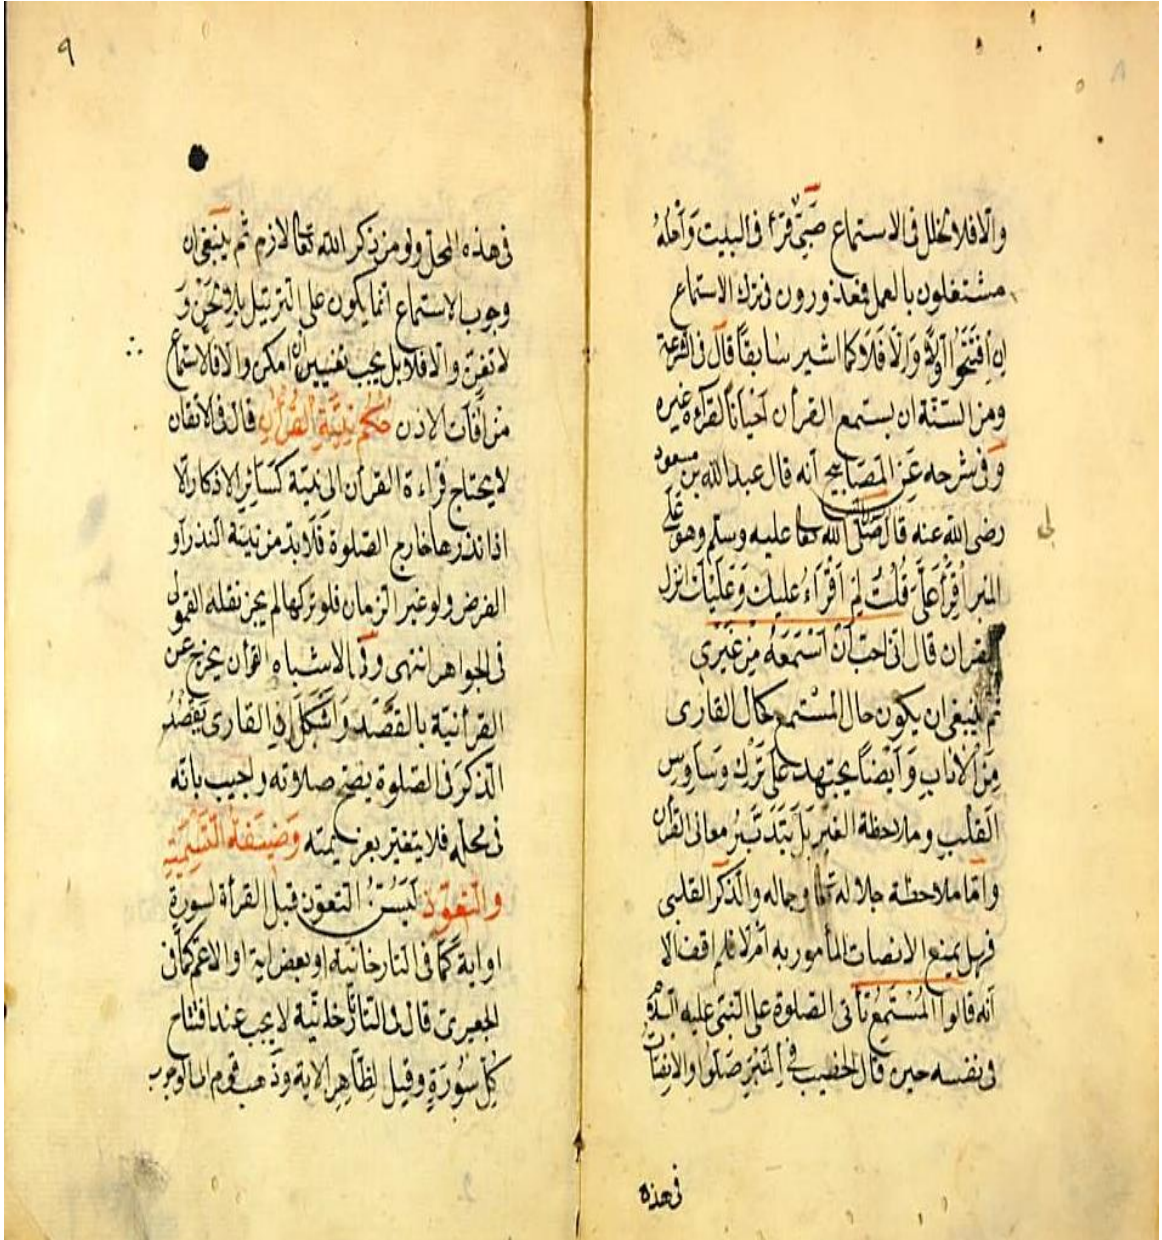 والا فلا لخلل فى الاستماع صبى قرأ فى البيت واهله
مشتغلون بالعمل فمعذورون فى ترك الاستماع
ان افتتحوا اولا والا فلا وكما اشير سابقا قال فى الشرعة
ومن السنة ان يستمع القرأن احيانا لقرآءة غيره
وفى شرحه عن المصابيح انه قال عبد الله بن مسعود
رضى الله عنه قال صلى الله تعا عليه وسلم وهو على
المنبر اقرأ على قلت لم اقراء عليك وعليك انزل
القران قال انى احب ان استمعه من غيرى
ثم ينبغى ان يكون حال المستمع كحال القارى
من الاداب وايضا يجتهد على ترك وساوس
القلب وملاحظة الغير بل يتدبر معانى القرأن
واما ملاحظة جلاله تعا وجماله والذكر القلبى
فهل يمنع الانصات المأمور به أم لا فلم اقف الا
انه قالوا المستمع تأتى الصلوة على النبى عليه السلام
فى نفسه حين قال الخطيب فى المنبر صلوا والانصات
فى هذه
٩
فى هذه المحل ولو من ذكر الله تعا لازم ثم ينبغى ان
وجوب الاستماع انما يكون على الترتيل بلا لحن و
لا تغن والا فلا بل يجب تغييره ان امكن والا فالاستماع
من آفات الاذن حكم نية القرأن قال فى الاتقان
لا يحتاج قراءة القرأن الى نية كسائر الاذكار الا
اذا نذرها خارج الصلوة فلا بد من نية النذر او
الفرض ولو غير الزمان فلو تركها لم يجز نقله القمولى
فى الجواهر انتهى وفى الاشباه القرأن يخرج عن
القرأنية بالقصد واشكل ان القارى يقصد
الذكر فى الصلوة يصح صلاوته واجيب بانه
فى محله فلا يتغير بعزيمته وصفة التسمية
والتعوذ ليسن التعوذ قبل القرأة لسورة
او اية كما فى التارخانية او بعض اية او الاعم كما فى
الجعبرى قال فى التاتارخانية لا يجب عند افتتاح
كل سورة وقيل لظاهر الاية وذهب قوم الى الوجوب